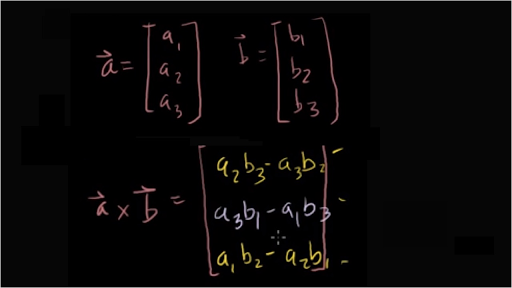 a⃗ = [a₁ a₂ a₃] b⃗ = [b₁ b₂ b₃]
a⃗ × b⃗ = [a₂b₃ - a₃b₂
a₃b₁ - a₁b₃
a₁b₂ - a₂b₁]